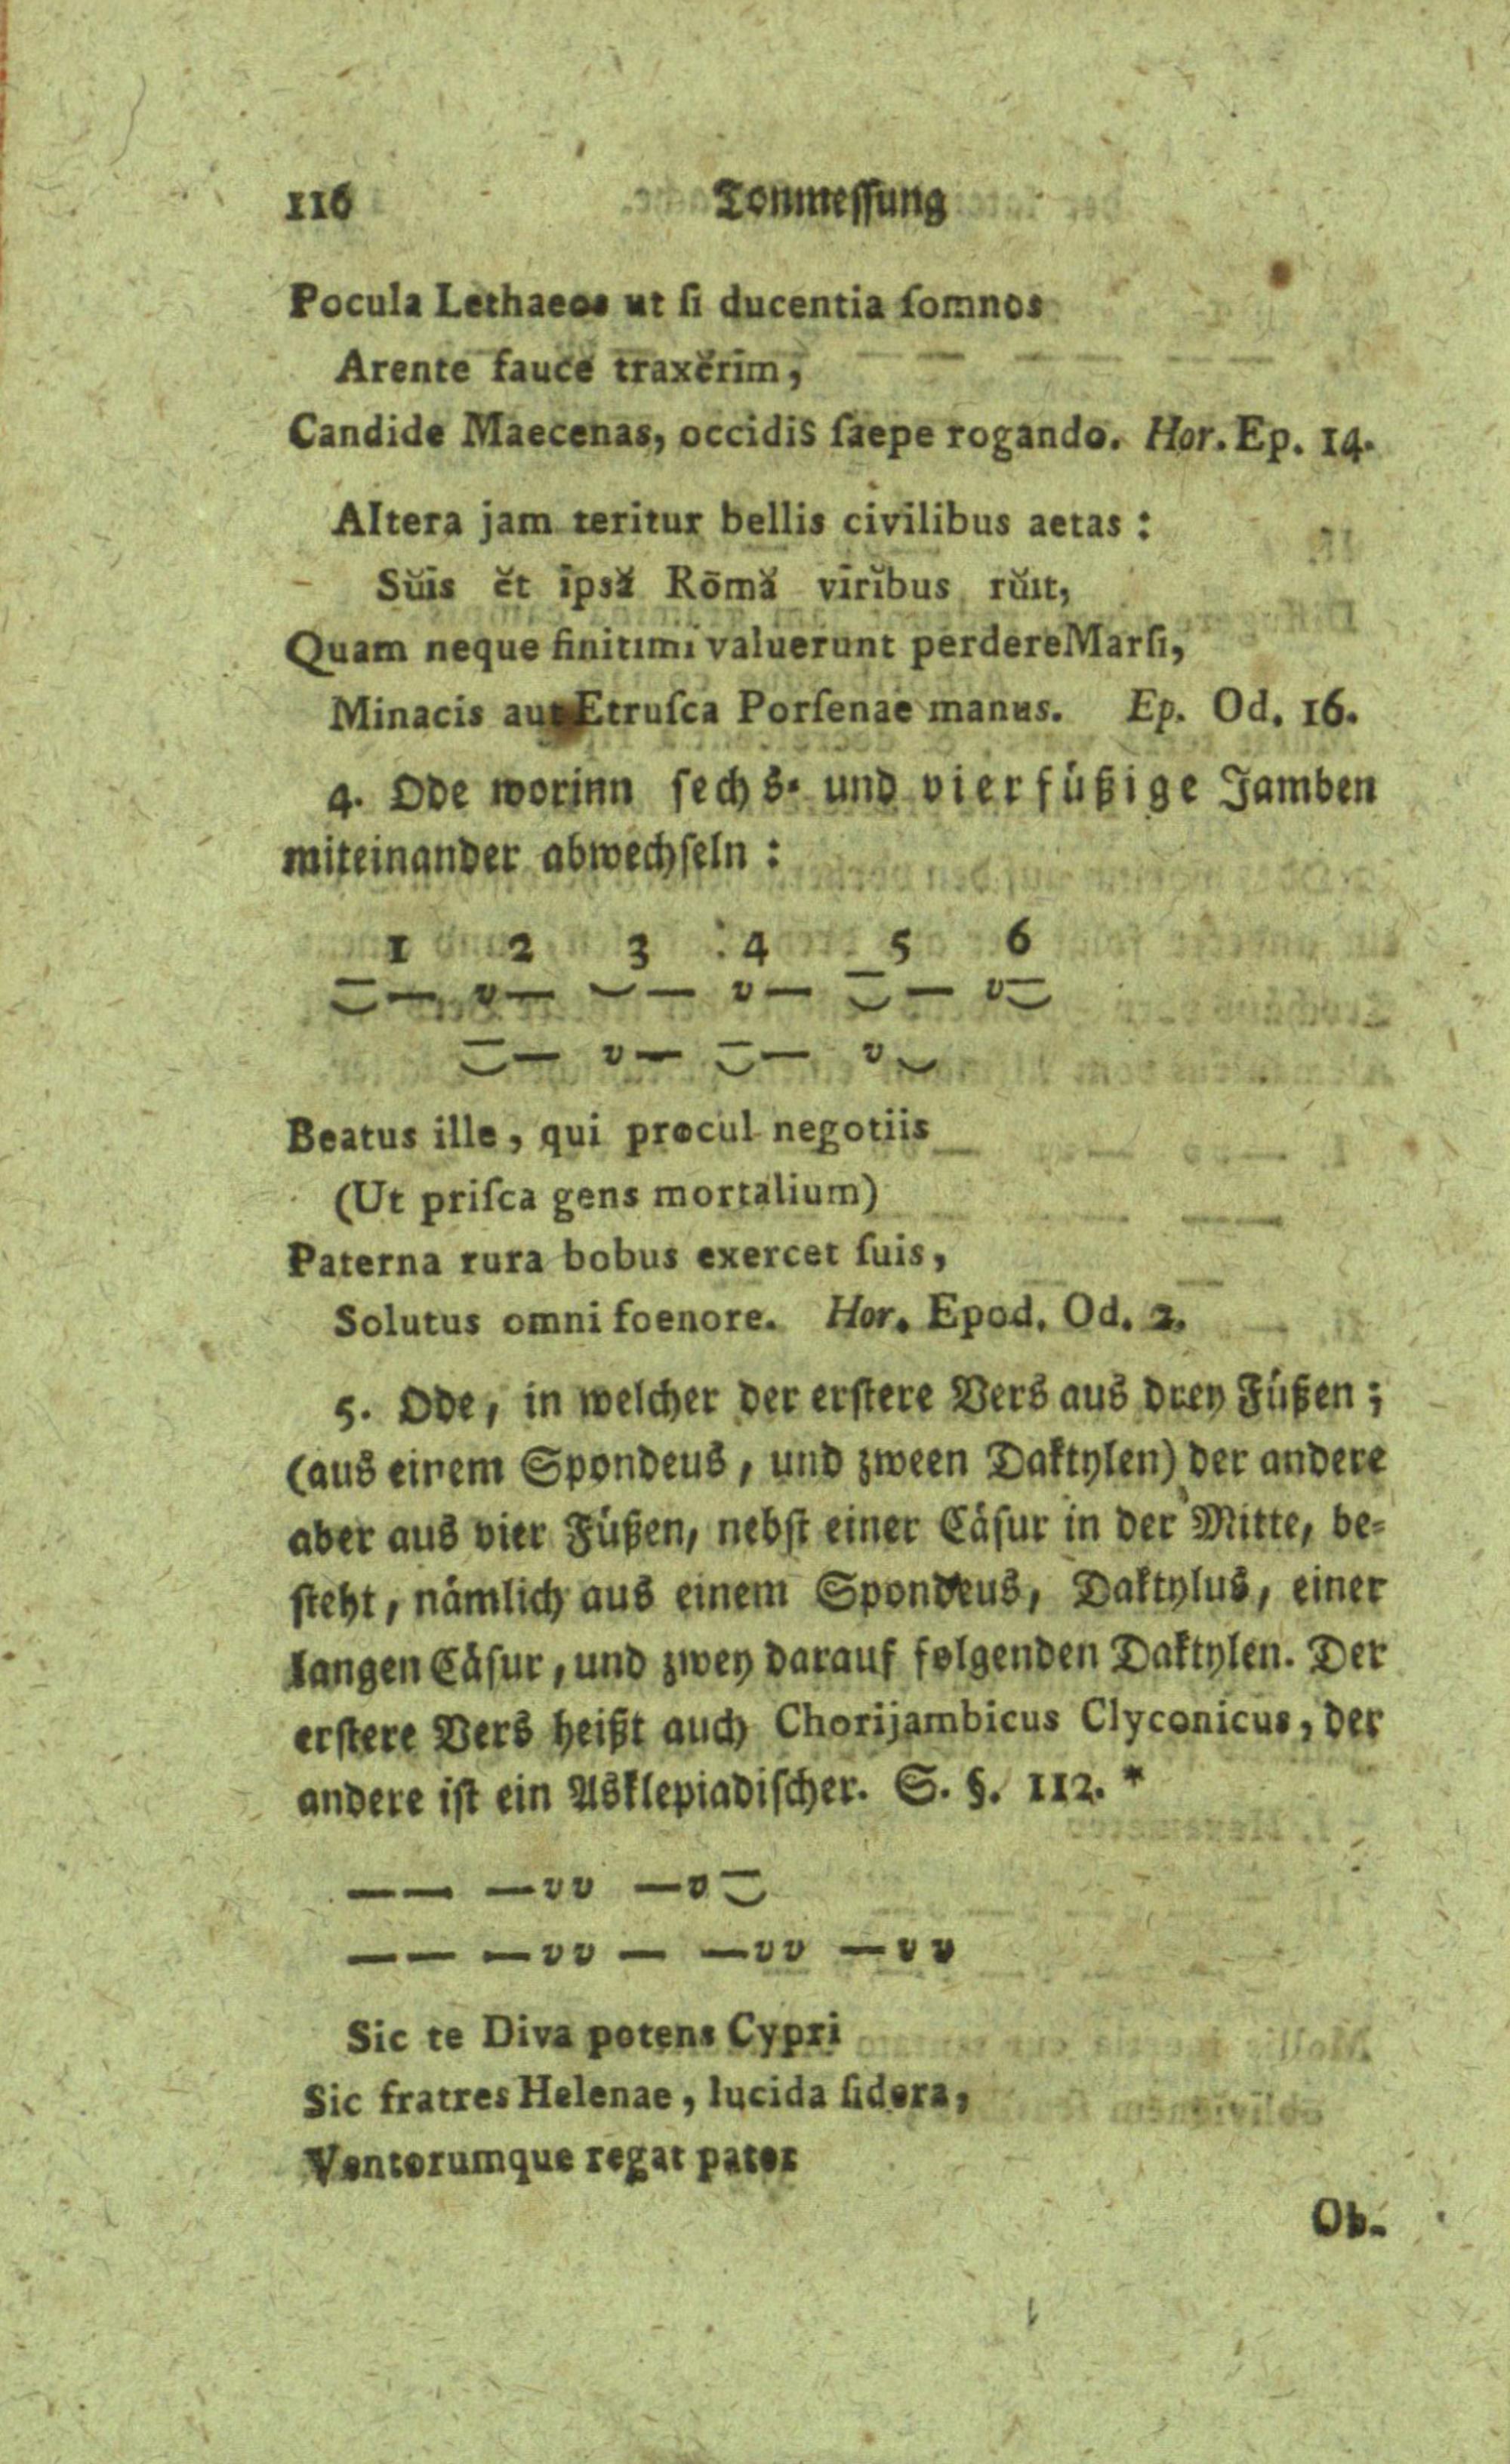 116 Tonmessung
Pocula Lethaeos ut ſi ducentia ſomnos
Arente fauce traxĕrim,
Candide Maecenas, occidis ſaepe rogando. Hor. Ep. 14.
Altera jam teritur bellis civilibus aetas:
Sŭis ĕt ĭpsă Rōmă vĭrĭbus rŭit,
Quam neque finitimi valuerunt perdere Marſi,
Minacis aut Etruſca Porſenae manus. Ep. Od. 16.
4. Ode worinn ſechs- und vierfüßige Jamben
miteinander abwechſeln:
1 2 3 4 5 6
⏓— ᴗ— ᴗ— ᴗ— ⏓— ᴗ⏓
⏓— ᴗ— ⏓— ᴗᴗ
Beatus ille, qui procul negotiis
(Ut priſca gens mortalium)
Paterna rura bobus exercet ſuis,
Solutus omni foenore. Hor. Epod. Od. 2.
5. Ode, in welcher der erſtere Vers aus drey Füßen;
(aus einem Spondeus, und zween Daktylen) der andere
aber aus vier Füßen, nebſt einer Cäſur in der Mitte, be-
ſteht, nämlich aus einem Spondeus, Daktylus, einer
langen Cäſur, und zwey darauf folgenden Daktylen. Der
erſtere Vers heißt auch Chorijambicus Clyconicus, der
andere iſt ein Asklepiadiſcher. S. §. 112. *
—— —ᴗᴗ —ᴗ⏓
—— —ᴗᴗ — —ᴗᴗ —ᴗᴗ
Sic te Diva potens Cypri
Sic fratres Helenae, lucida ſidera,
Ventorumque regat pater
Ob-